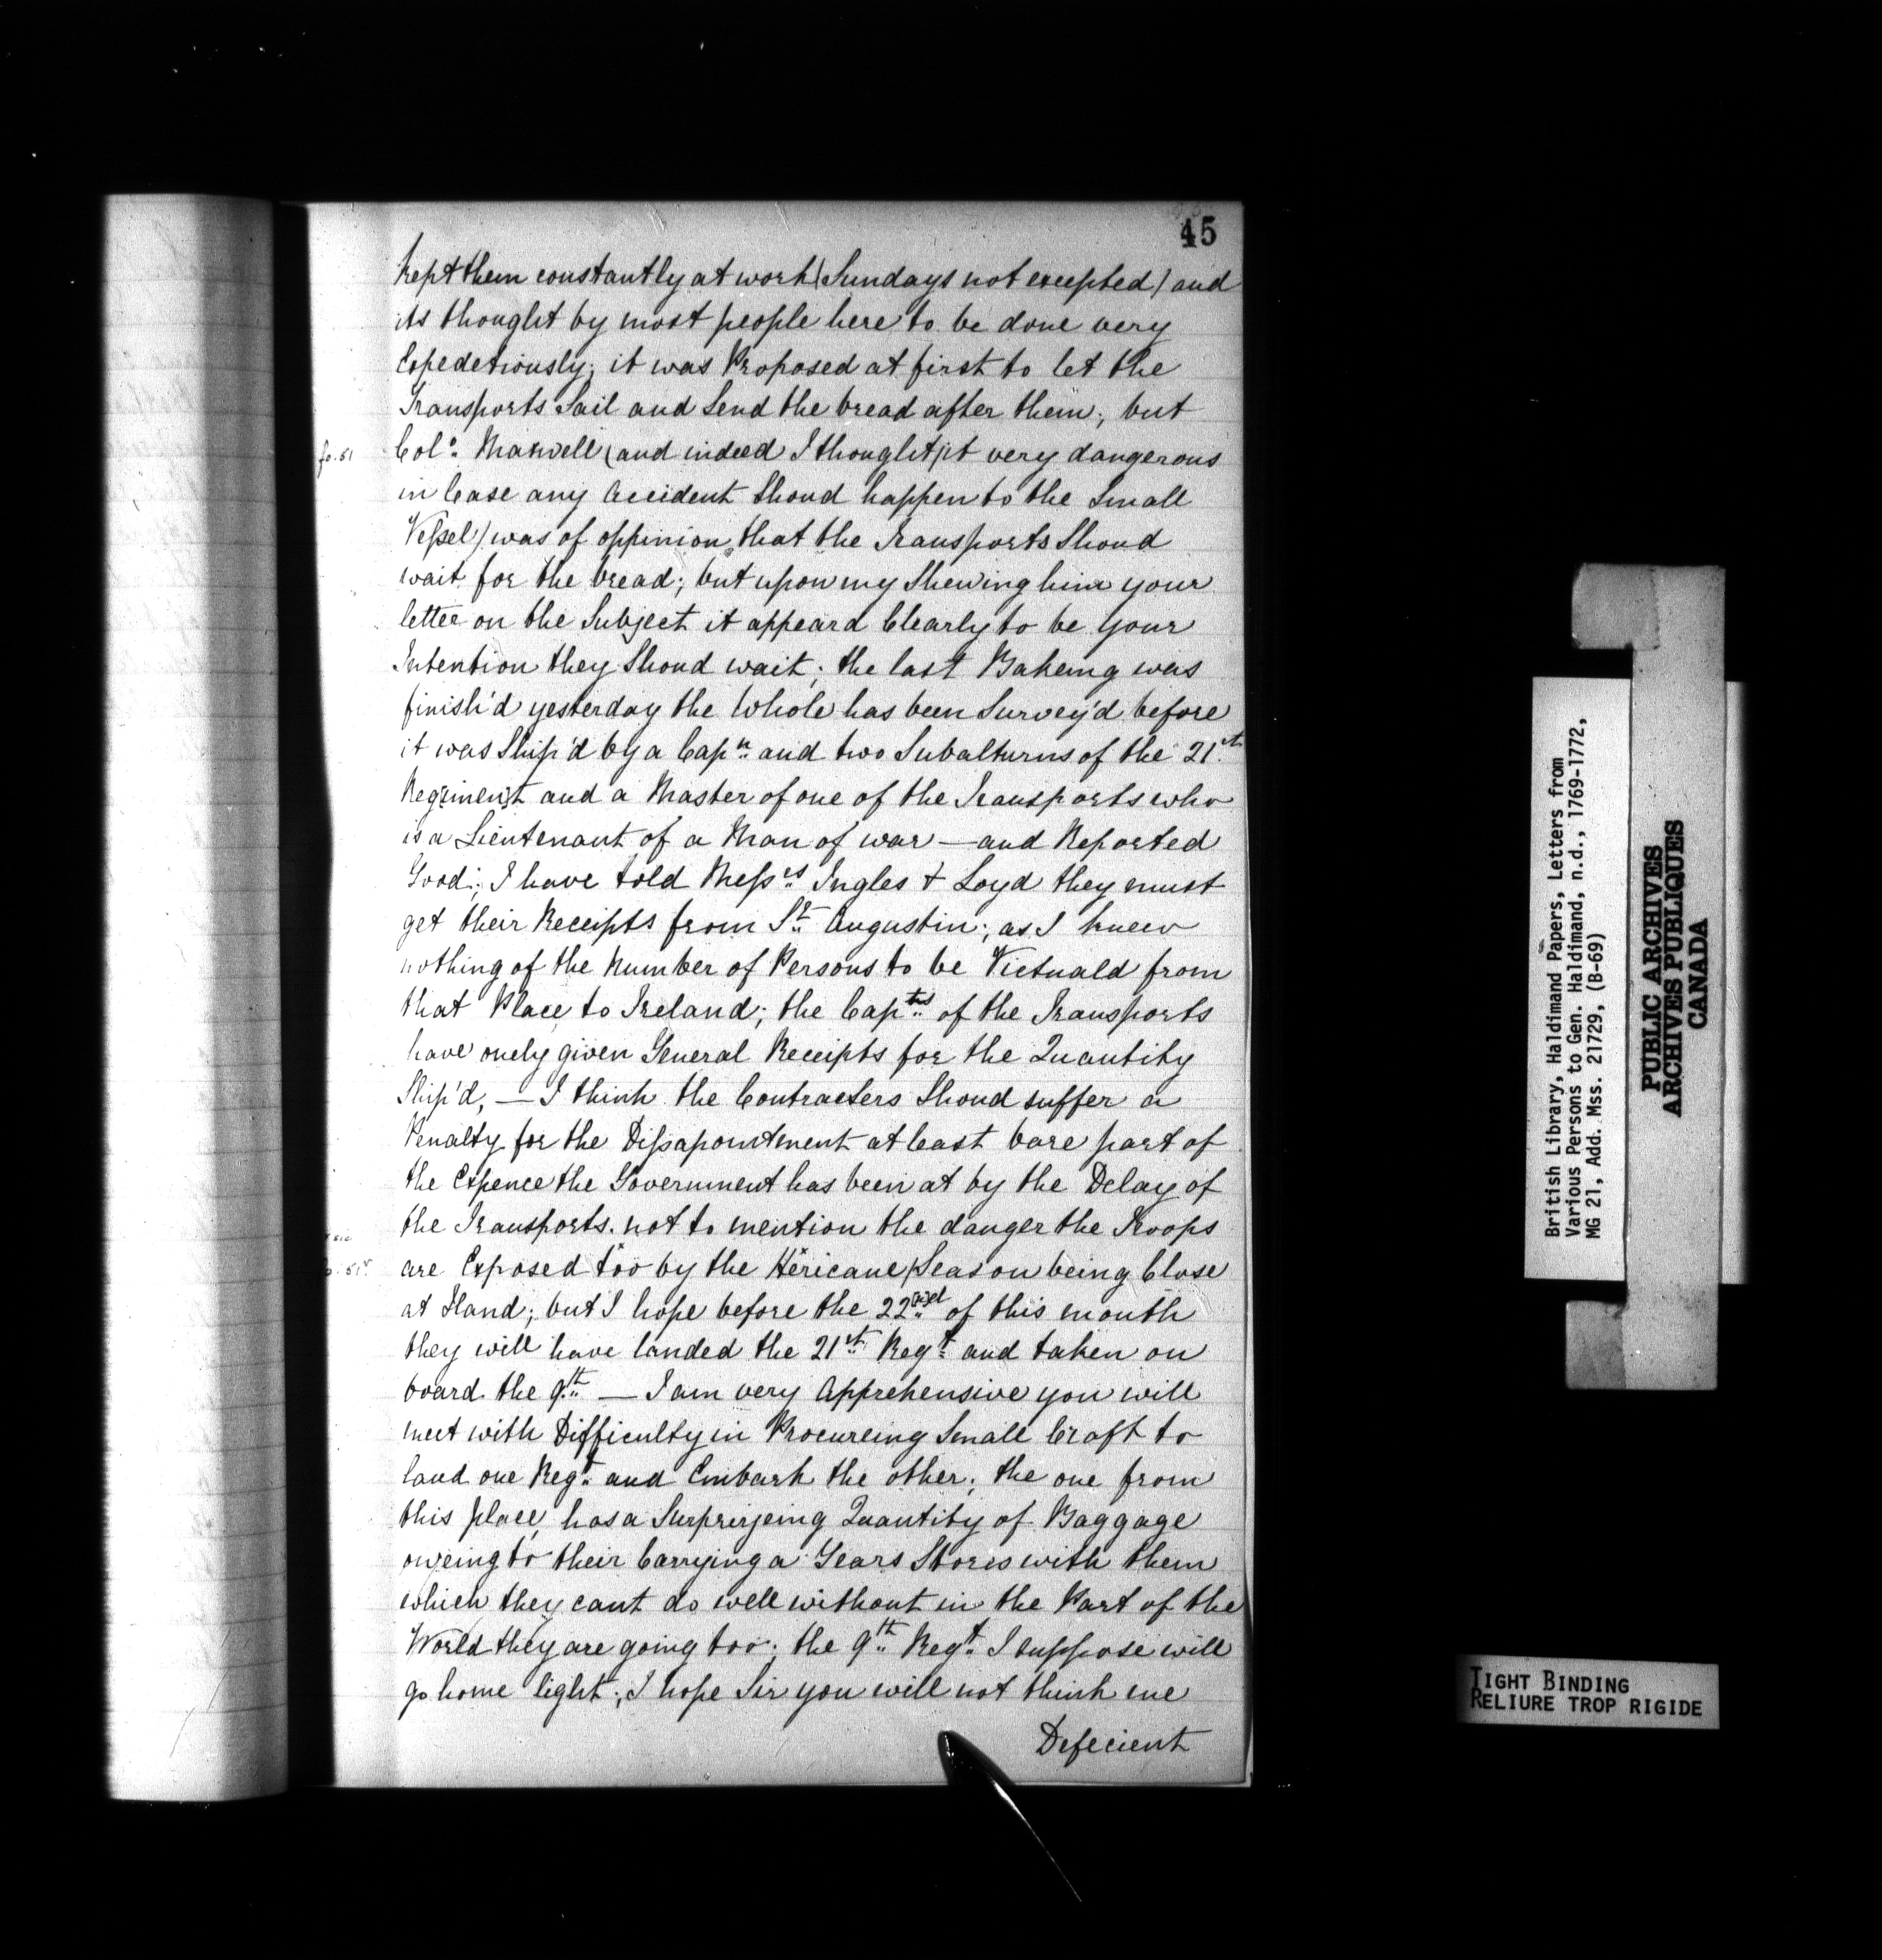 45
kept them constantly at work (Sundays not excepted) and
its thought by most people here to be done very
Expedetiously; it was Proposed at first to let the
Transports Sail and Send the bread after them; but
fo. 51
Col.º Maxwell (and indeed I thought it very dangerous
in Case any accident Shoud happen to the Small
Vessel) was of oppinion that the Transports Shoud
wait for the bread; but upon my Shewing him your
letter on the Subject it appeard Clearly to be Your
Intention they Shoud wait; the last Bakeing was
finish'd yesterday the Whole has been Survey'd before
it was Ship'd by a Capn. and two Subalturns of the 21st.
Regiment and a Master of one of the Transports who
is a Lieutenant of a Man of war — and Reported
Good; I have told Messrs. Ingles & Loyd they must
get their Receipts from St. Augustin; as I knew
nothing of the Number of Persons to be Victuald from
that Place to Ireland; the Capts. of the Transports
have onely given General Receipts for the Quantity
Ship'd, — I think the Contracters Shoud suffer a
Penalty for the Dissapointment at least bare part of
the Expence the Government has been at by the Delay of
the Transports. not to mention the danger the Troops
x sic
fo. 51v
are Exposed too by the Hericane Season being Close
at Hand; but I hope before the 22[n]d of this month
they will have landed the 21st. Regt. and taken on
board the 9th. — I am very Apprehensive you will
meet with Difficulty in Procureing Small Craft to
land one Regt. and Embark the other; the one from
this place has a Surprizeing Quantity of Baggage
oweing to their Carrying a Years Stores with them
which they cant do well without in the Part of the
World they are going too; the 9th. Regt. I suppose will
go home light; I hope Sir you will not think me
Defecient
British Library, Haldimand Papers, Letters from
Various Persons to Gen. Haldimand, n.d., 1769-1772,
MG 21, Add. Mss. 21729, (B-69)
PUBLIC ARCHIVES
ARCHIVES PUBLIQUES
CANADA
TIGHT BINDING
RELIURE TROP RIGIDE